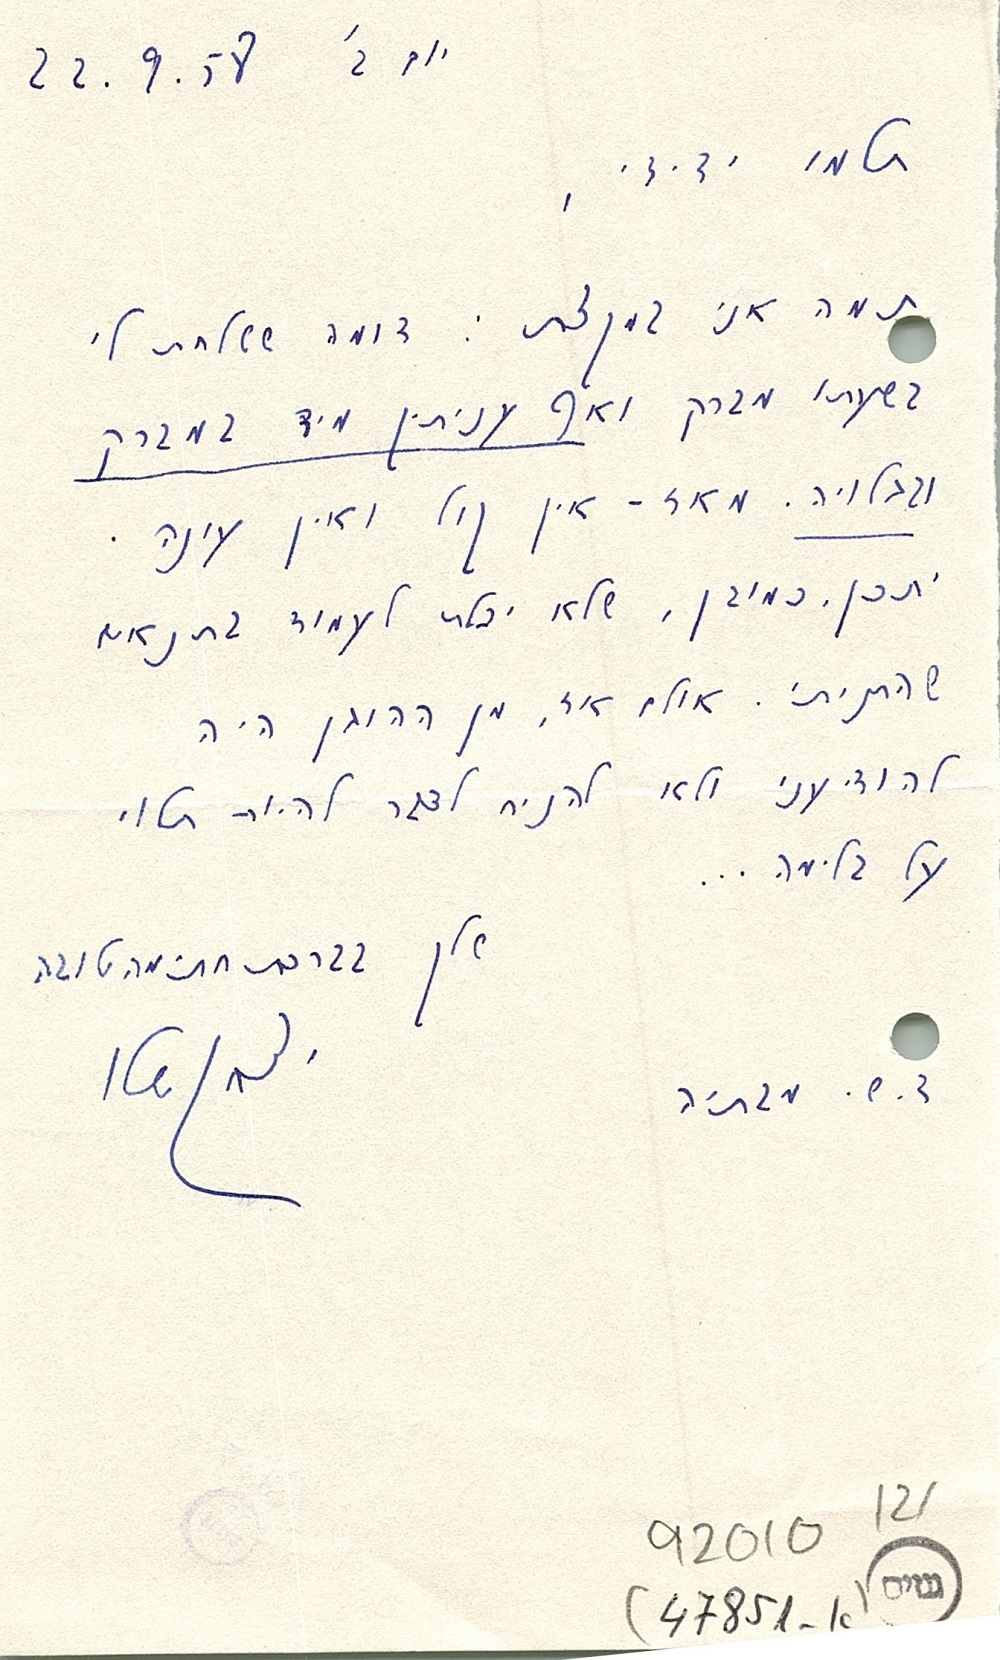 יום ב' 22.9.58
שלמה ידידי,
תמה אני במקצת: דומה ששלחת לי
בשעתו מברק ואף עניתיך מיד במברק
ובגלויה. מאז - אין קול ואין עונה.
יתכן, כמובן, שלא יכלת לעמוד בתנאים
שהתניתי. אולם אז, מן ההוגן היה
להודיעני ולא להניח לדבר להיות תלוי
על בלימה...
שלך בברכת חתימה טובה
יצחק
ד.ש. מבתיה
121
92010
(47851-א)
גנזים